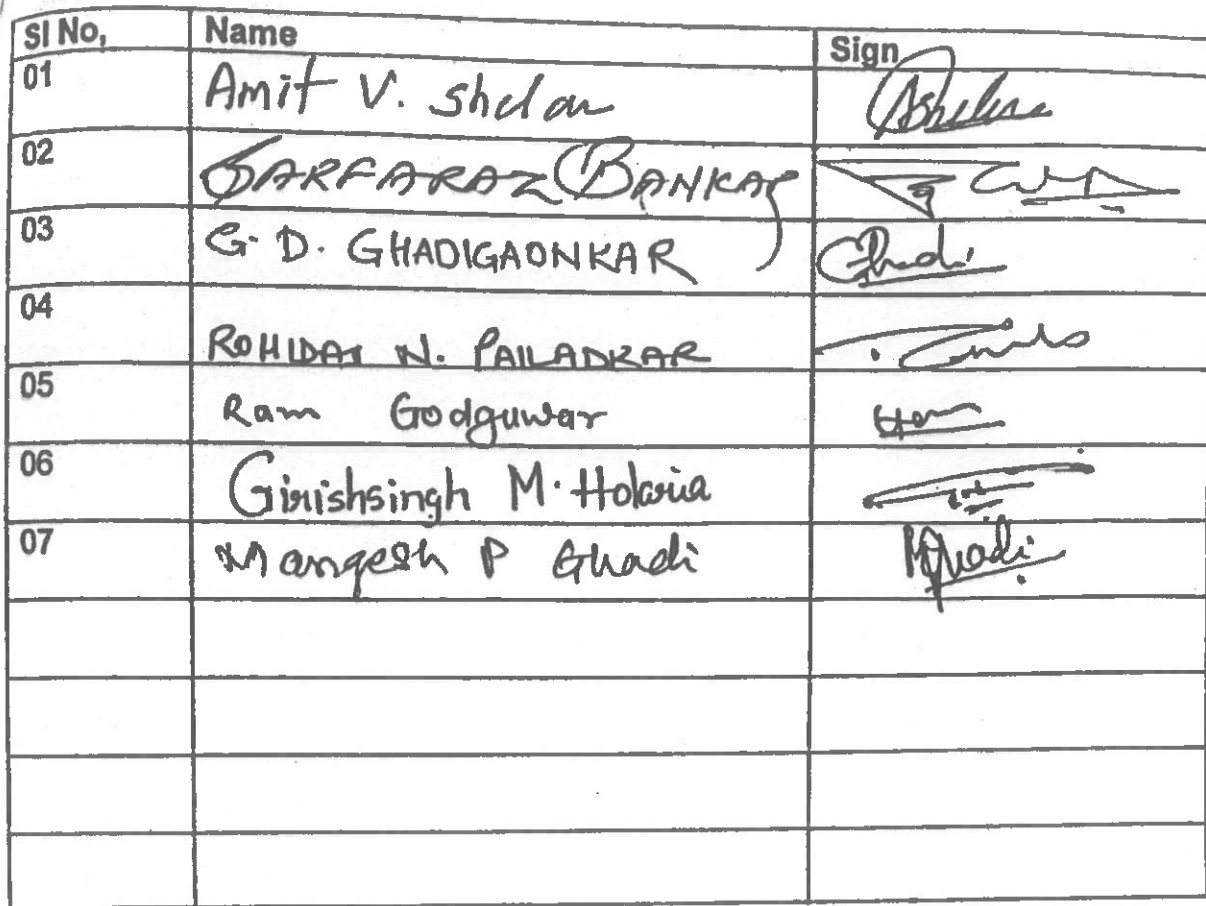 Sl No, Name Sign
01 Amit V. Shelar
02 SARFARAZ BANKAR
03 G. D. GHADIGAONKAR Ghadi
04 ROHIDAS N. PAILADKAR
05 Ram Godguwar
06 Girishsingh M. Holaria
07 Mangesh P Ghadi MGhadi